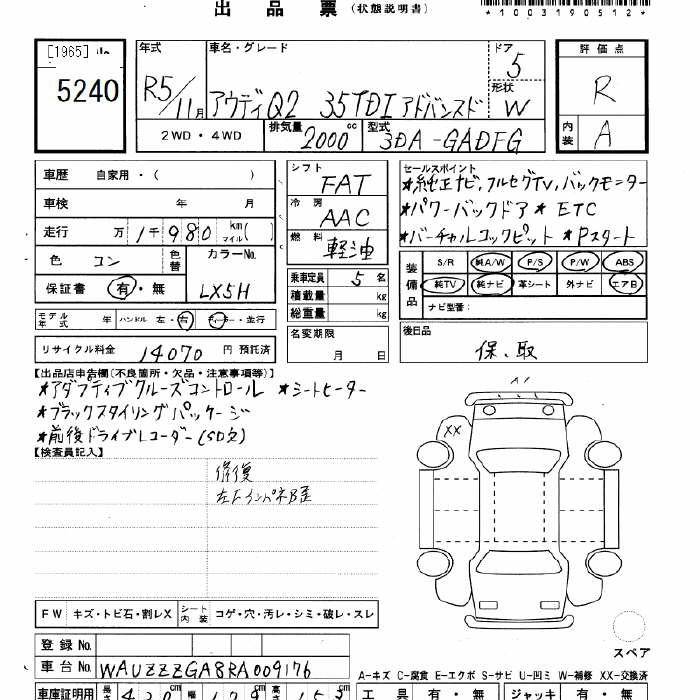 出品票 (状態説明書)
*1003190512*
[1965]
5240
年式 R5/11月
車名・グレード アウディQ2 35TDI アドバンスド
ドア 5
形状 W
評価点 R
内装 A
2WD・4WD 排気量 2000cc 型式 3DA-GADFG
車歴 自家用・( )
シフト FAT
セールスポイント
★純正ナビ,フルセグTV,バックモニター
車検 年 月
冷房 AAC
★パワーバックドア ★ETC
走行 万 1千980 km マイル( )
燃料 軽油
★バーチャルコックピット ★Pスタート
色 コン 色替 カラーNo. LX5H
保証書 有・無
乗車定員 5名
積載量 kg
総重量 kg
装備品 S/R 純A/W P/S P/W ABS
純TV 純ナビ 革シート 外ナビ エアB
ナビ型番:
モデル年式 年 ハンドル 左・右 ディーラー・並行
名変期限 月 日
後日品 保、取
リサイクル料金 14070円 預託済
【出品店申告欄(不良箇所・欠品・注意事項等)】
★アダプティブクルーズコントロール ★シートヒーター
★ブラックスタイリングパッケージ
★前後ドライブレコーダー(SD欠)
【検査員記入】
修復
A1
XX
FW キズ・トビ石・割レX シート内装 コゲ・穴・汚レ・シミ・破レ・スレ
スペア
登録No.
車台No. WAUZZZGA8RA009176
A-キズ C-腐食 E-エクボ S-サビ U-凹ミ W-補修 XX-交換済
車庫証明用 長さ 420cm 幅 179cm 高さ 155cm
工具 有・無 ジャッキ 有・無